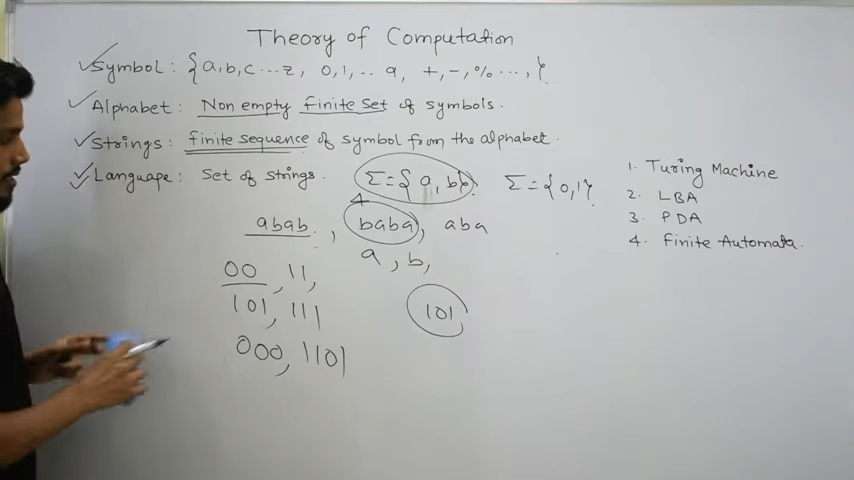 Theory of Computation
Symbol: { a, b, c ... z, 0, 1, .. 9, +, -, % ..., }
Alphabet: Non empty finite set of symbols.
Strings: finite sequence of symbol from the alphabet.
Language: Set of strings. Σ = { a, b }. Σ = { 0, 1 }.
4
abab, baba, aba
a, b,
00, 11,
101, 111
101
000, 1101
1. Turing Machine
2. LBA
3. PDA
4. Finite Automata.